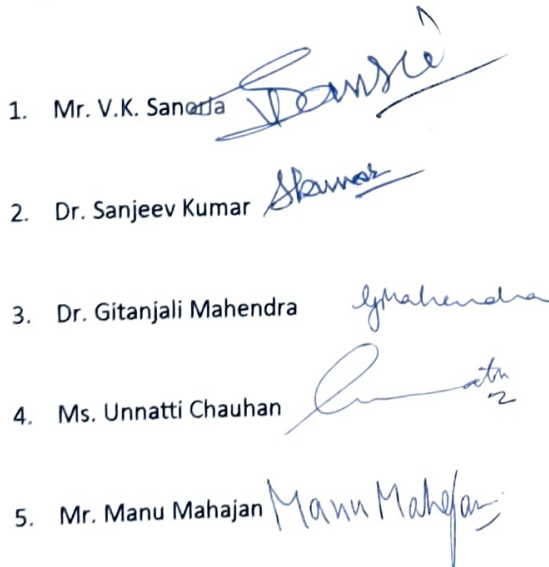 1. Mr. V.K. Sanoria
2. Dr. Sanjeev Kumar Skumar
3. Dr. Gitanjali Mahendra GMahendra
4. Ms. Unnatti Chauhan
5. Mr. Manu Mahajan Manu Mahajan